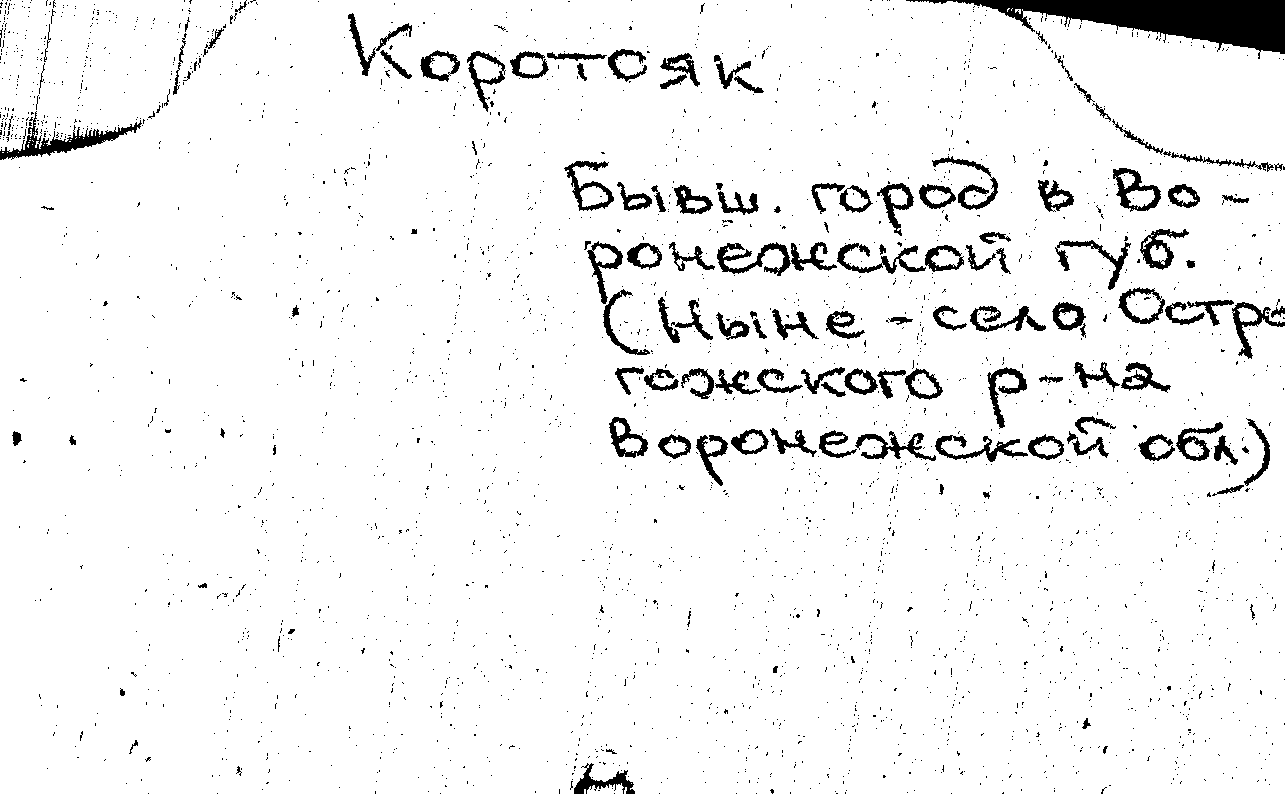 Коротояк
Бывш. город в Во-
ронежской губ.
(Ныне - село Остро
гожского р-на
Воронежской обл.)